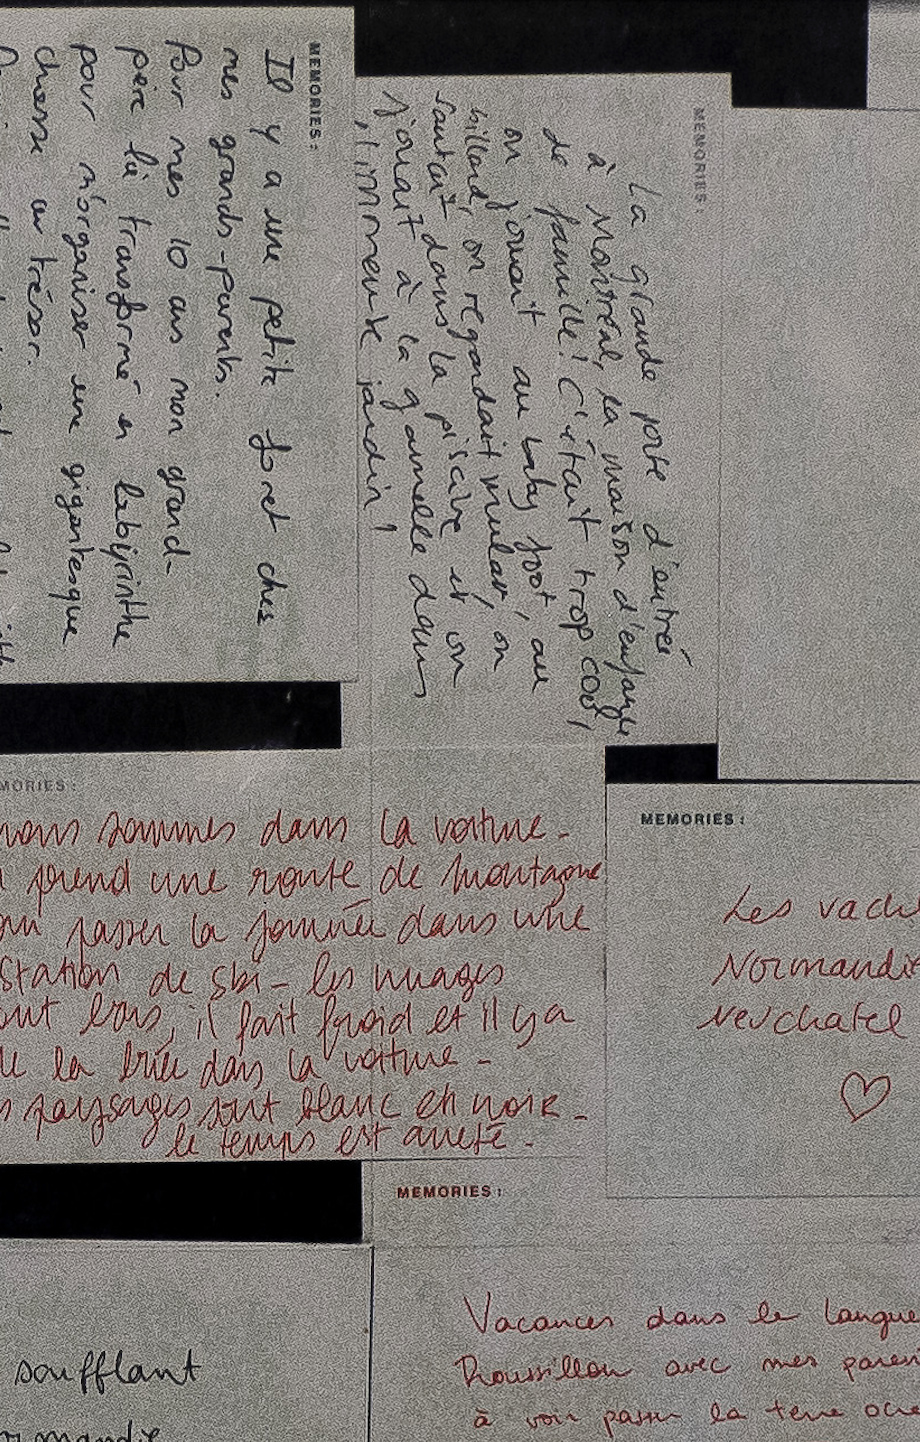 MEMORIES:
Il y a une petite foret chez
mes grands-parents.
Pour mes 10 ans mon grand-
père l'a transformé en labyrinthe
pour m'organiser une gigantesque
chasse au trésor.
MEMORIES:
La grande porte d'entrée
à Montréal, la maison d'enfance
de famille! C'était trop cool,
on jouait au baby foot, au
billard, on regardait mulan, on
sautait dans la piscine et on
jouait à la gamelle dans
l'immense jardin!
MEMORIES:
nous sommes dans la voiture -
prend une route de montagne
passer la journée dans une
station de ski - les nuages
sont bas, il fait froid et il y a
de la buée dans la voiture -
paysages sont blanc et noir -
le temps est arrêté -
MEMORIES:
Les vach
Normandie
Neuchatel
MEMORIES:
Vacances dans le Langue
Roussillon avec mes paren
à voir passer la terre ocre
soufflant
rmandie